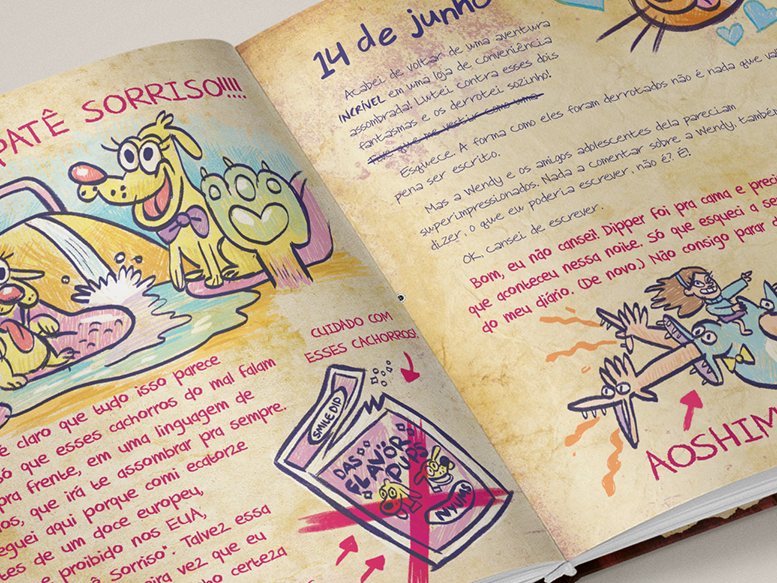 PATÊ SORRISO!!!!
CUIDADO COM
ESSES CACHORROS!
SMILE DIP
DAS
FLAVOR
PUPS
NYUMS
é claro que tudo isso parece
só que esses cachorros do mal falam
pra frente, em uma linguagem de
que irá te assombrar pra sempre.
aqui porque comi ecatorze
de um doce europeu,
e proibido nos EUA,
Sorriso". Talvez essa
vez que eu
certeza
14 de junho
Acabei de voltar de uma aventura
INCRÍVEL em uma loja de conveniência
assombrada! Lutei contra esses dois
fantasmas e os derrotei sozinho!
Esquece. A forma como eles foram derrotados não é nada que
pena ser escrito.
Mas a Wendy e os amigos adolescentes dela pareciam
superimpressionados. Nada a comentar sobre a Wendy, também
dizer, o que eu poderia escrever, não é? É!
OK, cansei de escrever.
Bom, eu não cansei! Dipper foi pra cama e
que aconteceu nessa noite. Só que esqueci a
do meu diário. (De novo.) Não consigo parar
AOSHIM